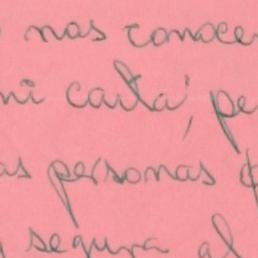 nas conoce
mi carta, pe
as personas
segura al